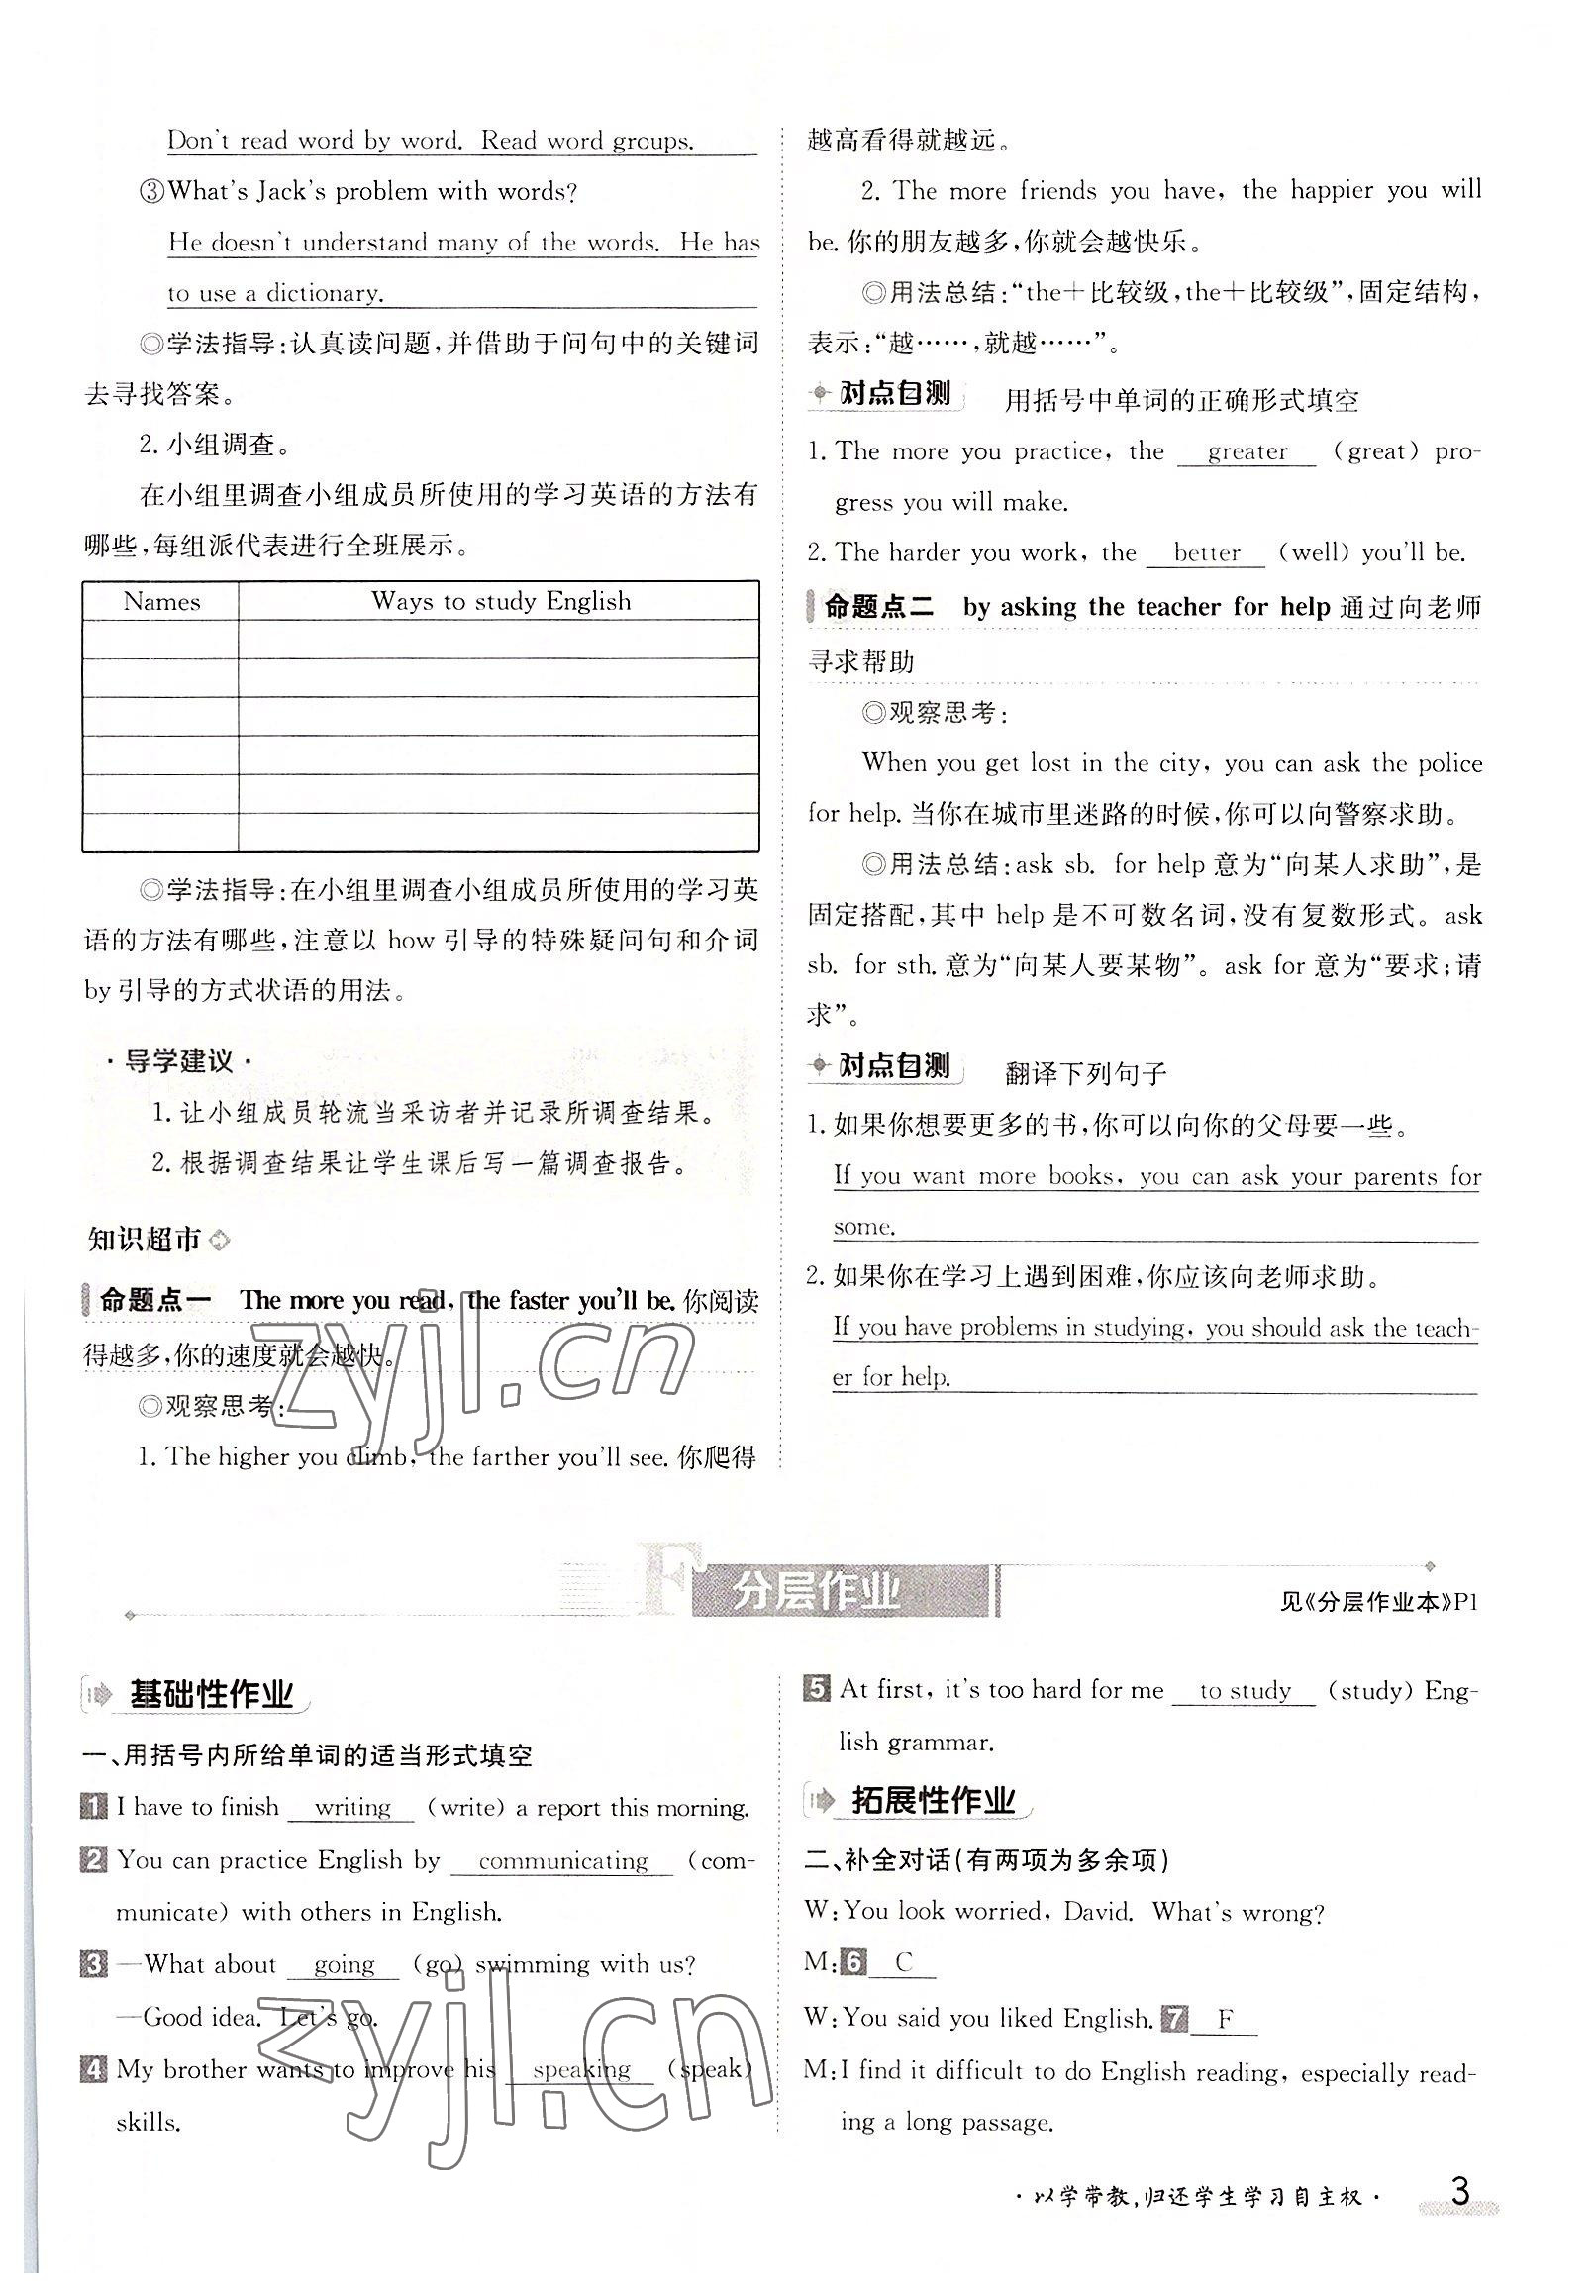 Don't read word by word. Read word groups.
③What's Jack's problem with words?
He doesn't understand many of the words. He has
to use a dictionary.
◎学法指导:认真读问题,并借助于问句中的关键词
去寻找答案。
2. 小组调查。
在小组里调查小组成员所使用的学习英语的方法有
哪些,每组派代表进行全班展示。
Names Ways to study English
◎学法指导:在小组里调查小组成员所使用的学习英
语的方法有哪些,注意以 how 引导的特殊疑问句和介词
by引导的方式状语的用法。
·导学建议·
1. 让小组成员轮流当采访者并记录所调查结果。
2. 根据调查结果让学生课后写一篇调查报告。
知识超市
命题点一 The more you read, the faster you'll be. 你阅读
得越多,你的速度就会越快。
◎观察思考:
1. The higher you climb, the farther you'll see. 你爬得
越高看得就越远。
2. The more friends you have, the happier you will
be. 你的朋友越多,你就会越快乐。
◎用法总结:“the+比较级,the+比较级”,固定结构,
表示:“越……,就越……”。
对点自测 用括号中单词的正确形式填空
1. The more you practice, the greater (great) pro-
gress you will make.
2. The harder you work, the better (well) you'll be.
命题点二 by asking the teacher for help 通过向老师
寻求帮助
◎观察思考:
When you get lost in the city, you can ask the police
for help. 当你在城市里迷路的时候,你可以向警察求助。
◎用法总结:ask sb. for help 意为“向某人求助”,是
固定搭配,其中 help 是不可数名词,没有复数形式。ask
sb. for sth. 意为“向某人要某物”。ask for 意为“要求;请
求”。
对点自测 翻译下列句子
1. 如果你想要更多的书,你可以向你的父母要一些。
If you want more books, you can ask your parents for
some.
2. 如果你在学习上遇到困难,你应该向老师求助。
If you have problems in studying, you should ask the teach-
er for help.
zyjl.cn
F 分层作业
见《分层作业本》P1
基础性作业
一、用括号内所给单词的适当形式填空
1 I have to finish writing (write) a report this morning.
2 You can practice English by communicating (com-
municate) with others in English.
3 —What about going (go) swimming with us?
—Good idea. Let's go.
4 My brother wants to improve his speaking (speak)
skills.
5 At first, it's too hard for me to study (study) Eng-
lish grammar.
拓展性作业
二、补全对话(有两项为多余项)
W: You look worried, David. What's wrong?
M: 6 C
W: You said you liked English. 7 F
M: I find it difficult to do English reading, especially read-
ing a long passage.
zyjl.cn
·以学带教,归还学生学习自主权· 3